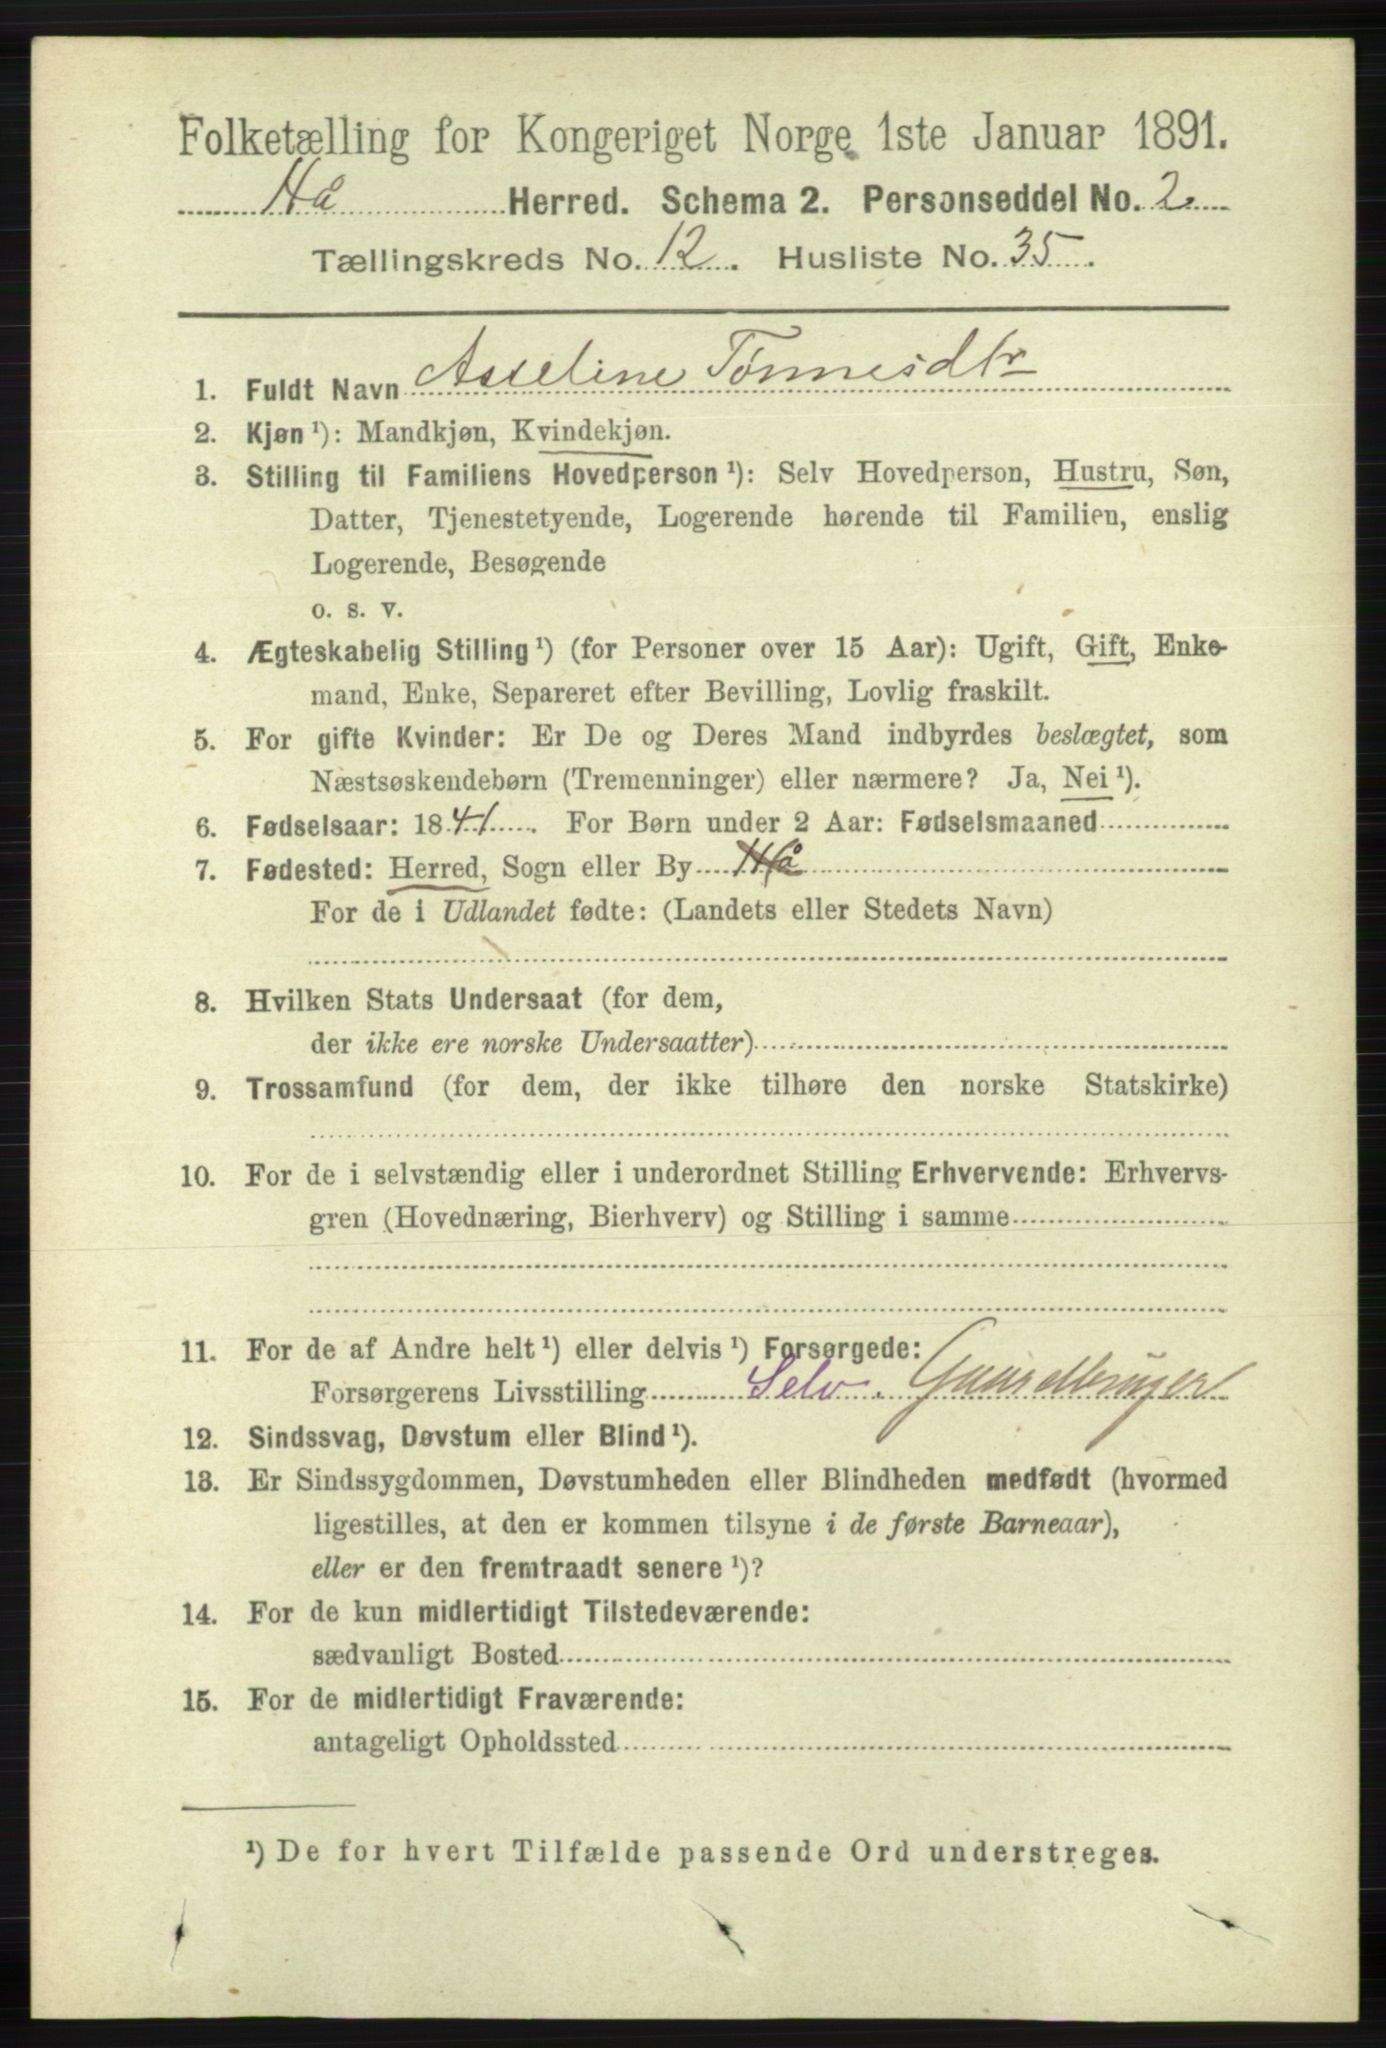 Folketælling for Kongeriget Norge 1ste Januar 1891.
Hå Herred. Schema 2. Personseddel No. 2.
Tællingskreds No. 12. Husliste No. 35.
1. Fuldt Navn Asseline Tønnesdtr
2. Kjøn ¹): Mandkjøn, Kvindekjøn.
3. Stilling til Familiens Hovedperson ¹): Selv Hovedperson, Hustru, Søn,
Datter, Tjenestetyende, Logerende hørende til Familien, enslig
Logerende, Besøgende
o. s. v.
4. Ægteskabelig Stilling ¹) (for Personer over 15 Aar): Ugift, Gift, Enke-
mand, Enke, Separeret efter Bevilling, Lovlig fraskilt.
5. For gifte Kvinder: Er De og Deres Mand indbyrdes beslægtet, som
Næstsøskendebørn (Tremenninger) eller nærmere? Ja, Nei ¹).
6. Fødselsaar: 1841. For Børn under 2 Aar: Fødselsmaaned
7. Fødested: Herred, Sogn eller By Hå
For de i Udlandet fødte: (Landets eller Stedets Navn)
8. Hvilken Stats Undersaat (for dem,
der ikke ere norske Undersaatter)
9. Trossamfund (for dem, der ikke tilhøre den norske Statskirke)
10. For de i selvstændig eller i underordnet Stilling Erhvervende: Erhvervs-
gren (Hovednæring, Bierhverv) og Stilling i samme
11. For de af Andre helt ¹) eller delvis ¹) Forsørgede:
Forsørgerens Livsstilling Selv. Gaardbruger
12. Sindssvag, Døvstum eller Blind ¹).
13. Er Sindssygdommen, Døvstumheden eller Blindheden medfødt (hvormed
ligestilles, at den er kommen tilsyne i de første Barneaar),
eller er den fremtraadt senere ¹)?
14. For de kun midlertidigt Tilstedeværende:
sædvanligt Bosted
15. For de midlertidigt Fraværende:
antageligt Opholdssted
¹) De for hvert Tilfælde passende Ord understreges.